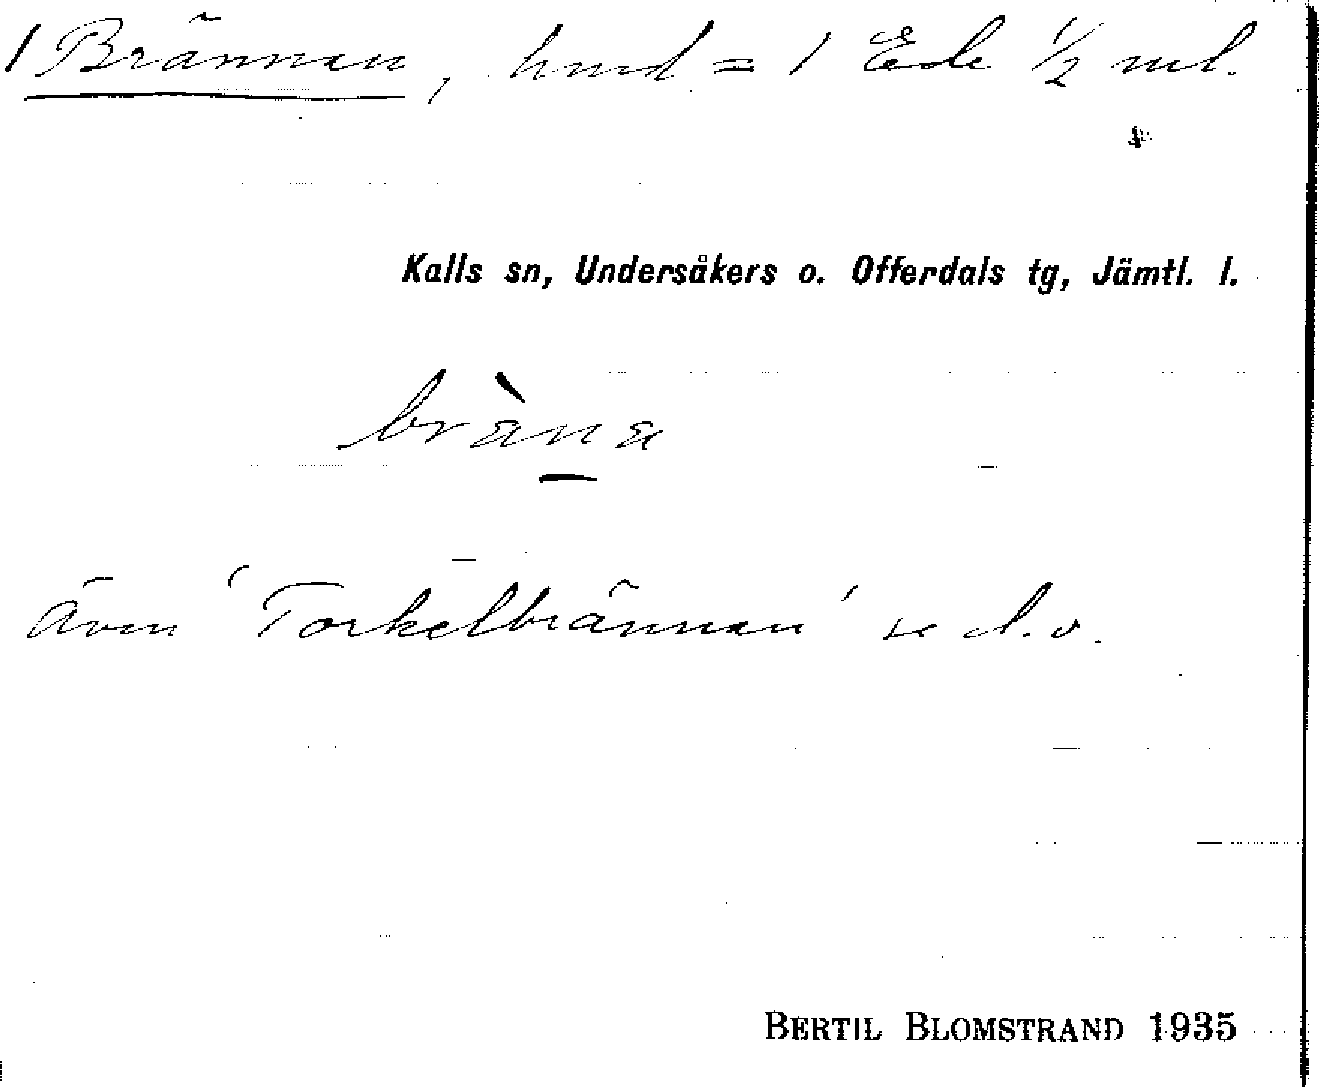 1 Brännan, hmd = 1 Ede 1/2 mtl.
Kalls sn, Undersåkers o. Offerdals tg, Jämtl. l.
bràna
även 'Torkelbrännan' se d.o.
BERTIL BLOMSTRAND 1935